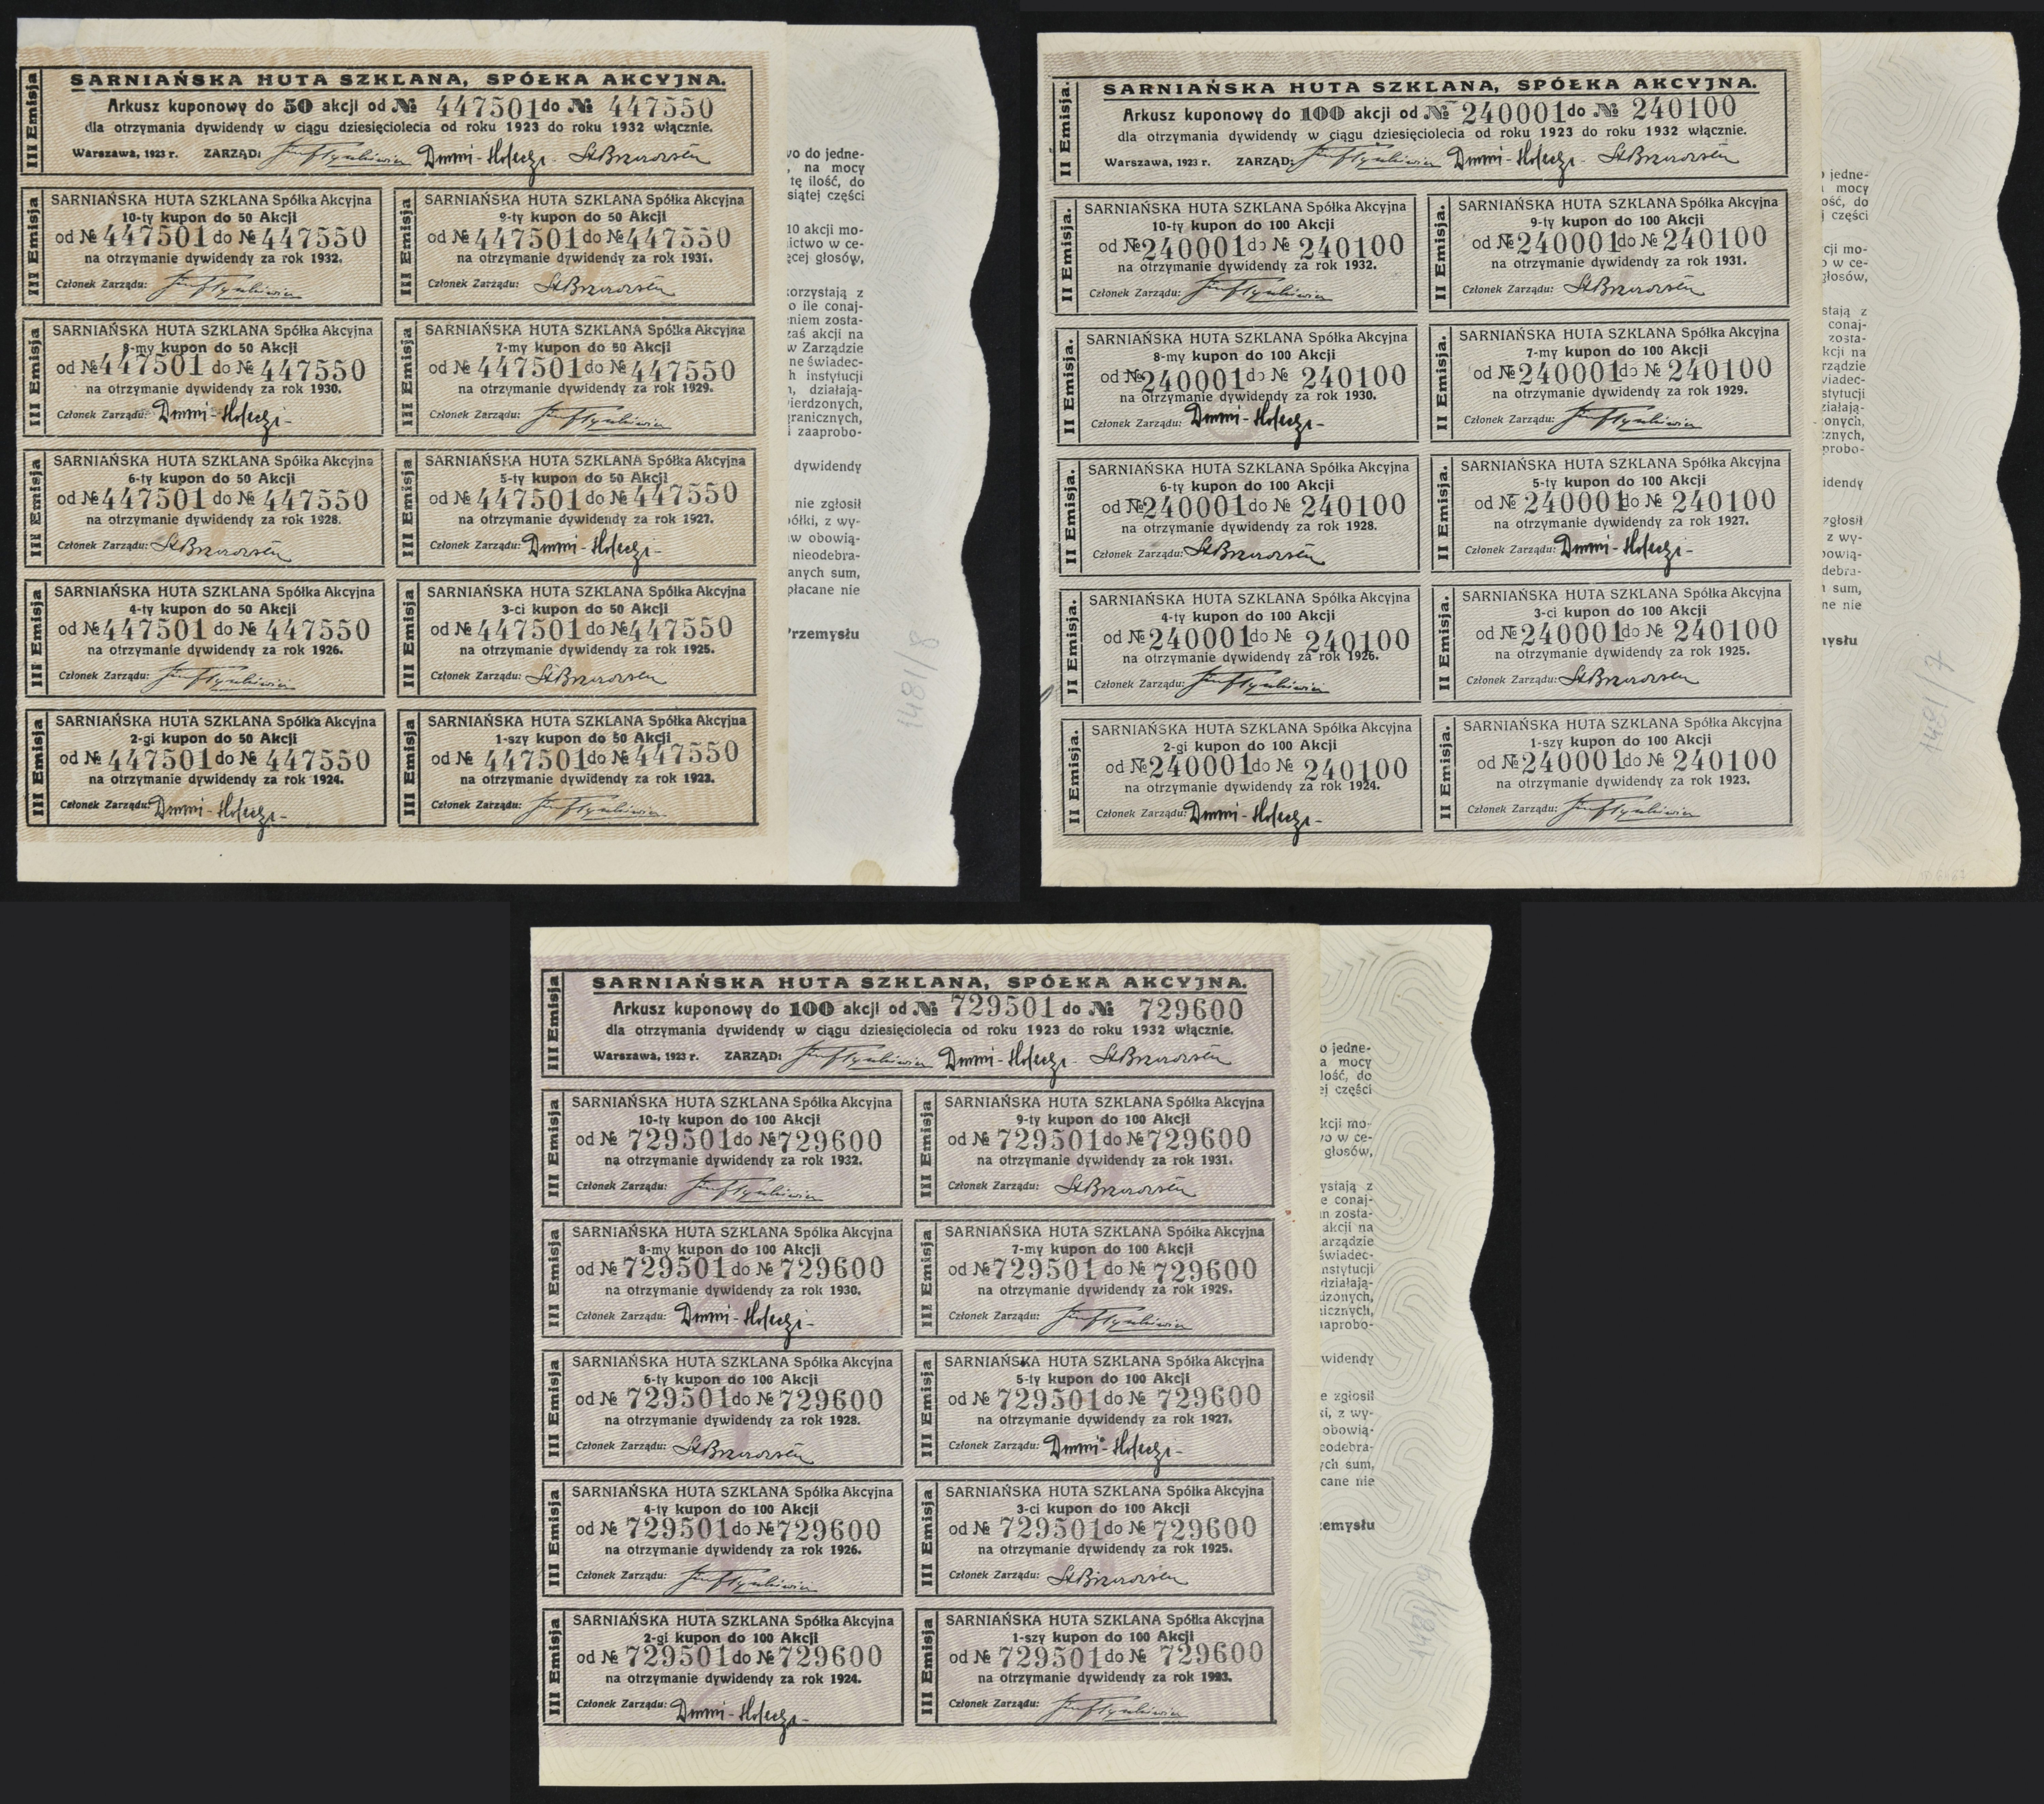 III Emisja
SARNIAŃSKA HUTA SZKLANA, SPÓŁKA AKCYJNA.
Arkusz kuponowy do 50 akcji od № 447501 do № 447550
dla otrzymania dywidendy w ciągu dziesięciolecia od roku 1923 do roku 1932 włącznie.
Warszawa, 1923 r. ZARZĄD:
III Emisja
SARNIAŃSKA HUTA SZKLANA Spółka Akcyjna
10-ty kupon do 50 Akcji
od № 447501 do № 447550
na otrzymanie dywidendy za rok 1932.
Członek Zarządu:
III Emisja
SARNIAŃSKA HUTA SZKLANA Spółka Akcyjna
9-ty kupon do 50 Akcji
od № 447501 do № 447550
na otrzymanie dywidendy za rok 1931.
Członek Zarządu:
III Emisja
SARNIAŃSKA HUTA SZKLANA Spółka Akcyjna
8-my kupon do 50 Akcji
od № 447501 do № 447550
na otrzymanie dywidendy za rok 1930.
Członek Zarządu:
III Emisja
SARNIAŃSKA HUTA SZKLANA Spółka Akcyjna
7-my kupon do 50 Akcji
od № 447501 do № 447550
na otrzymanie dywidendy za rok 1929.
Członek Zarządu:
III Emisja
SARNIAŃSKA HUTA SZKLANA Spółka Akcyjna
6-ty kupon do 50 Akcji
od № 447501 do № 447550
na otrzymanie dywidendy za rok 1928.
Członek Zarządu:
III Emisja
SARNIAŃSKA HUTA SZKLANA Spółka Akcyjna
5-ty kupon do 50 Akcji
od № 447501 do № 447550
na otrzymanie dywidendy za rok 1927.
Członek Zarządu:
III Emisja
SARNIAŃSKA HUTA SZKLANA Spółka Akcyjna
4-ty kupon do 50 Akcji
od № 447501 do № 447550
na otrzymanie dywidendy za rok 1926.
Członek Zarządu:
III Emisja
SARNIAŃSKA HUTA SZKLANA Spółka Akcyjna
3-ci kupon do 50 Akcji
od № 447501 do № 447550
na otrzymanie dywidendy za rok 1925.
Członek Zarządu:
III Emisja
SARNIAŃSKA HUTA SZKLANA Spółka Akcyjna
2-gi kupon do 50 Akcji
od № 447501 do № 447550
na otrzymanie dywidendy za rok 1924.
Członek Zarządu:
III Emisja
SARNIAŃSKA HUTA SZKLANA Spółka Akcyjna
1-szy kupon do 50 Akcji
od № 447501 do № 447550
na otrzymanie dywidendy za rok 1923.
Członek Zarządu:
vo do jedne-
, na mocy
tę ilość, do
siątej części
10 akcji mo-
nictwo w ce-
ęcej głosów,
korzystają z
o ile conaj-
niem zosta-
zaś akcji na
w Zarządzie
ne świadec-
h instytucji
n, działają-
ierdzonych,
granicznych,
i zaaprobo-
dywidendy
nie zgłosił
ółki, z wy-
w obowią-
nieodebra-
anych sum,
płacane nie
Przemysłu
1481/8
II Emisja.
SARNIAŃSKA HUTA SZKLANA, SPÓŁKA AKCYJNA.
Arkusz kuponowy do 100 akcji od № 240001 do № 240100
dla otrzymania dywidendy w ciągu dziesięciolecia od roku 1923 do roku 1932 włącznie.
Warszawa, 1923 r. ZARZĄD:
II Emisja.
SARNIAŃSKA HUTA SZKLANA Spółka Akcyjna
10-ty kupon do 100 Akcji
od № 240001 do № 240100
na otrzymanie dywidendy za rok 1932.
Członek Zarządu:
II Emisja.
SARNIAŃSKA HUTA SZKLANA Spółka Akcyjna
9-ty kupon do 100 Akcji
od № 240001 do № 240100
na otrzymanie dywidendy za rok 1931.
Członek Zarządu:
II Emisja.
SARNIAŃSKA HUTA SZKLANA Spółka Akcyjna
8-my kupon do 100 Akcji
od № 240001 do № 240100
na otrzymanie dywidendy za rok 1930.
Członek Zarządu:
II Emisja.
SARNIAŃSKA HUTA SZKLANA Spółka Akcyjna
7-my kupon do 100 Akcji
od № 240001 do № 240100
na otrzymanie dywidendy za rok 1929.
Członek Zarządu:
II Emisja.
SARNIAŃSKA HUTA SZKLANA Spółka Akcyjna
6-ty kupon do 100 Akcji
od № 240001 do № 240100
na otrzymanie dywidendy za rok 1928.
Członek Zarządu:
II Emisja.
SARNIAŃSKA HUTA SZKLANA Spółka Akcyjna
5-ty kupon do 100 Akcji
od № 240001 do № 240100
na otrzymanie dywidendy za rok 1927.
Członek Zarządu:
II Emisja.
SARNIAŃSKA HUTA SZKLANA Spółka Akcyjna
4-ty kupon do 100 Akcji
od № 240001 do № 240100
na otrzymanie dywidendy za rok 1926.
Członek Zarządu:
II Emisja.
SARNIAŃSKA HUTA SZKLANA Spółka Akcyjna
3-ci kupon do 100 Akcji
od № 240001 do № 240100
na otrzymanie dywidendy za rok 1925.
Członek Zarządu:
II Emisja.
SARNIAŃSKA HUTA SZKLANA Spółka Akcyjna
2-gi kupon do 100 Akcji
od № 240001 do № 240100
na otrzymanie dywidendy za rok 1924.
Członek Zarządu:
II Emisja.
SARNIAŃSKA HUTA SZKLANA Spółka Akcyjna
1-szy kupon do 100 Akcji
od № 240001 do № 240100
na otrzymanie dywidendy za rok 1923.
Członek Zarządu:
jedne-
mocy
ość, do
j części
cji mo-
o w ce-
głosów,
stają z
conaj-
zosta-
kcji na
rządzie
wiadec-
stytucji
ziałają-
onych,
znych,
probo-
idendy
zgłosił
z wy-
owią-
debra-
sum,
ne nie
mysłu
1481/7
III Emisja
SARNIAŃSKA HUTA SZKLANA, SPÓŁKA AKCYJNA.
Arkusz kuponowy do 100 akcji od № 729501 do № 729600
dla otrzymania dywidendy w ciągu dziesięciolecia od roku 1923 do roku 1932 włącznie.
Warszawa, 1923 r. ZARZĄD:
III Emisja
SARNIAŃSKA HUTA SZKLANA Spółka Akcyjna
10-ty kupon do 100 Akcji
od № 729501 do № 729600
na otrzymanie dywidendy za rok 1932.
Członek Zarządu:
III Emisja
SARNIAŃSKA HUTA SZKLANA Spółka Akcyjna
9-ty kupon do 100 Akcji
od № 729501 do № 729600
na otrzymanie dywidendy za rok 1931.
Członek Zarządu:
III Emisja
SARNIAŃSKA HUTA SZKLANA Spółka Akcyjna
8-my kupon do 100 Akcji
od № 729501 do № 729600
na otrzymanie dywidendy za rok 1930.
Członek Zarządu:
III Emisja
SARNIAŃSKA HUTA SZKLANA Spółka Akcyjna
7-my kupon do 100 Akcji
od № 729501 do № 729600
na otrzymanie dywidendy za rok 1929.
Członek Zarządu:
III Emisja
SARNIAŃSKA HUTA SZKLANA Spółka Akcyjna
6-ty kupon do 100 Akcji
od № 729501 do № 729600
na otrzymanie dywidendy za rok 1928.
Członek Zarządu:
III Emisja
SARNIAŃSKA HUTA SZKLANA Spółka Akcyjna
5-ty kupon do 100 Akcji
od № 729501 do № 729600
na otrzymanie dywidendy za rok 1927.
Członek Zarządu:
III Emisja
SARNIAŃSKA HUTA SZKLANA Spółka Akcyjna
4-ty kupon do 100 Akcji
od № 729501 do № 729600
na otrzymanie dywidendy za rok 1926.
Członek Zarządu:
III Emisja
SARNIAŃSKA HUTA SZKLANA Spółka Akcyjna
3-ci kupon do 100 Akcji
od № 729501 do № 729600
na otrzymanie dywidendy za rok 1925.
Członek Zarządu:
III Emisja
SARNIAŃSKA HUTA SZKLANA Spółka Akcyjna
2-gi kupon do 100 Akcji
od № 729501 do № 729600
na otrzymanie dywidendy za rok 1924.
Członek Zarządu:
III Emisja
SARNIAŃSKA HUTA SZKLANA Spółka Akcyjna
1-szy kupon do 100 Akcji
od № 729501 do № 729600
na otrzymanie dywidendy za rok 1923.
Członek Zarządu:
o jedne-
a mocy
lość, do
ej części
kcji mo-
vo w ce-
głosów,
ystają z
e conaj-
m zosta-
akcji na
arządzie
świadec-
nstytucji
działają-
dzonych,
nicznych,
aaprobo-
widendy
e zgłosił
ki, z wy-
obowią-
eodebra-
ych sum,
cane nie
zemysłu